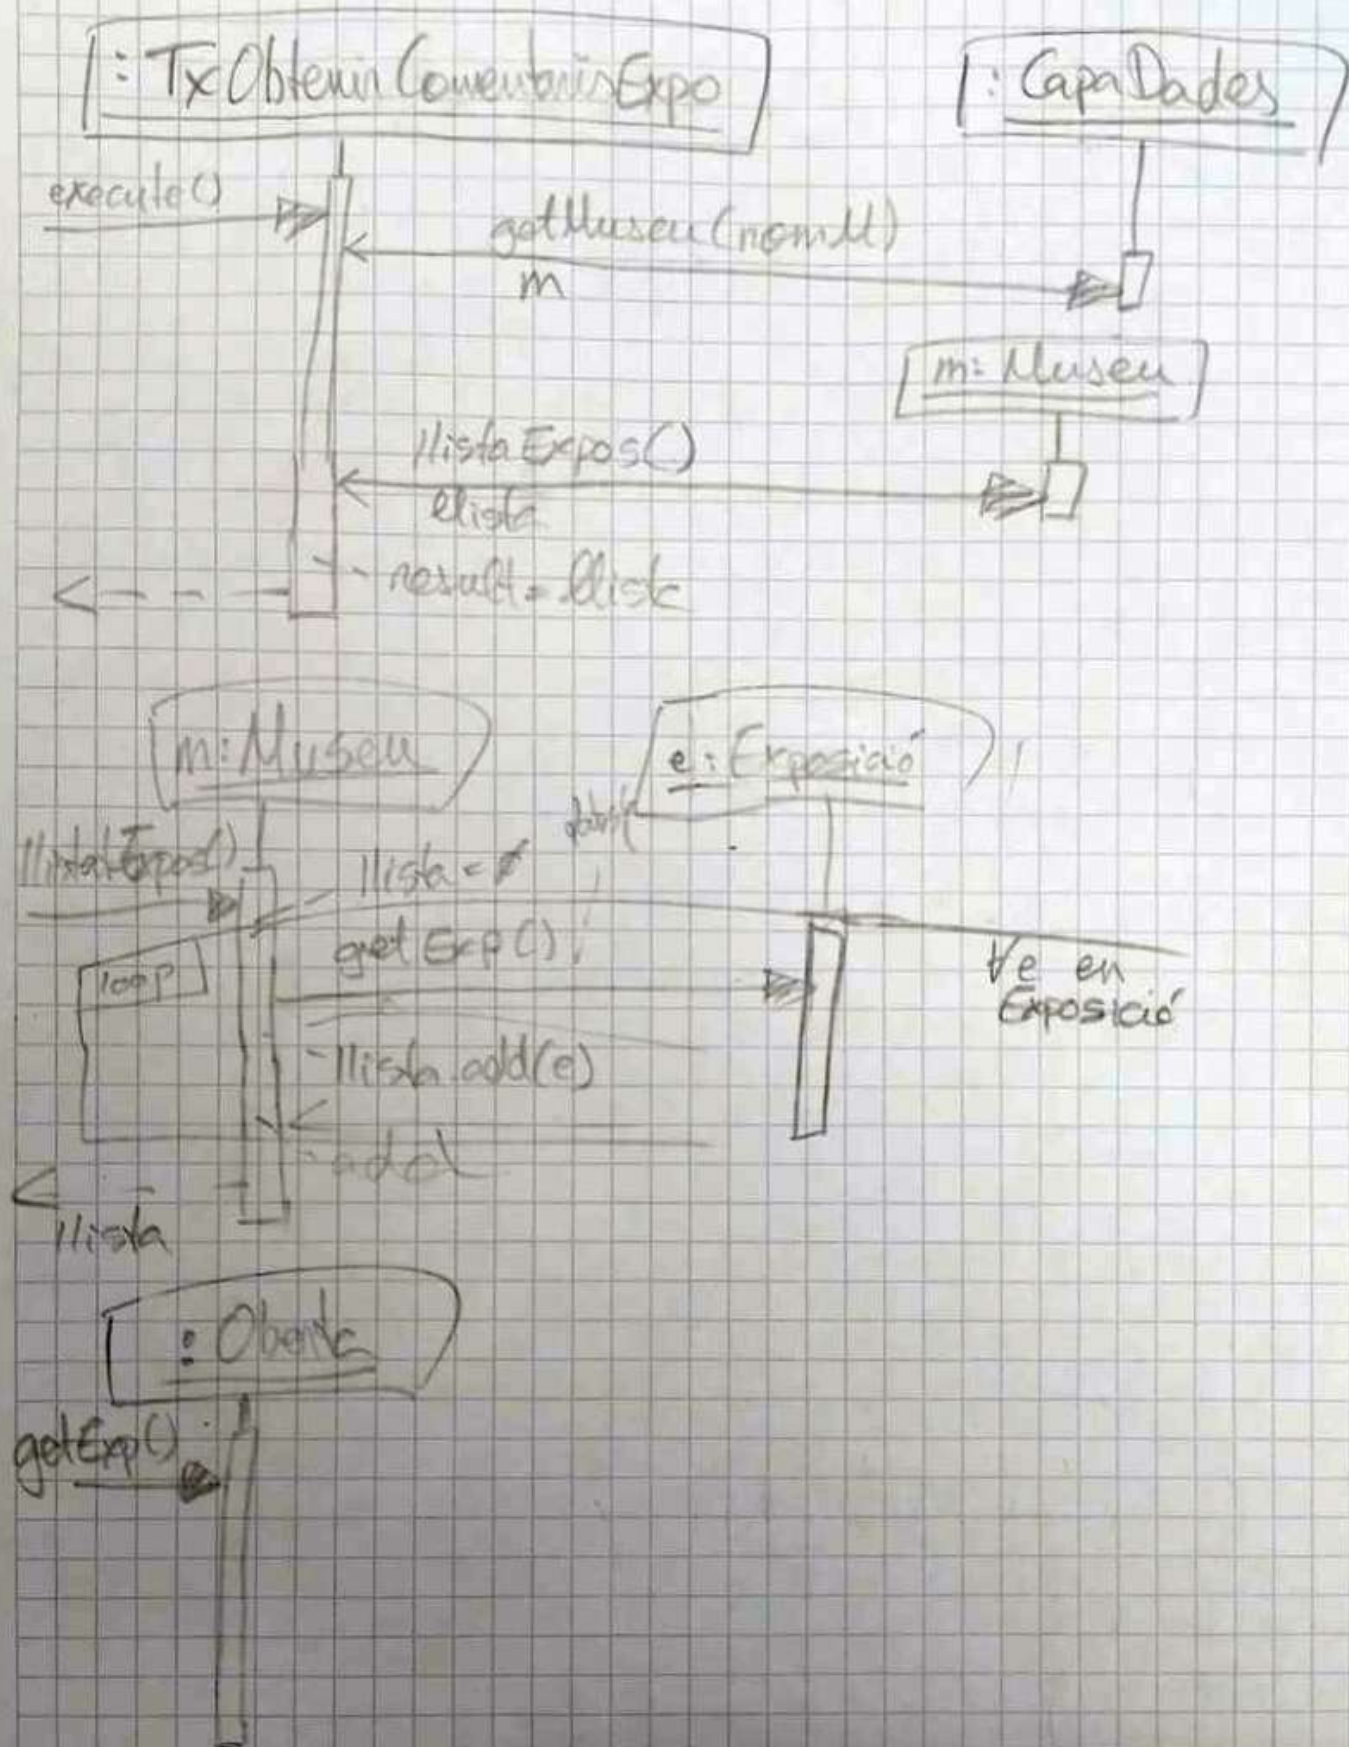 : TxObtenirComentarisExpo
: CapaDades
execute()
getMuseu(nomM)
m
m: Museu
llistaExpos()
llista
result = llista
m: Museu
e: Exposició
llistatExpos()
llista = ø
getExp()
loop
∀e en
Exposició
llista.add(e)
add
llista
getExp()